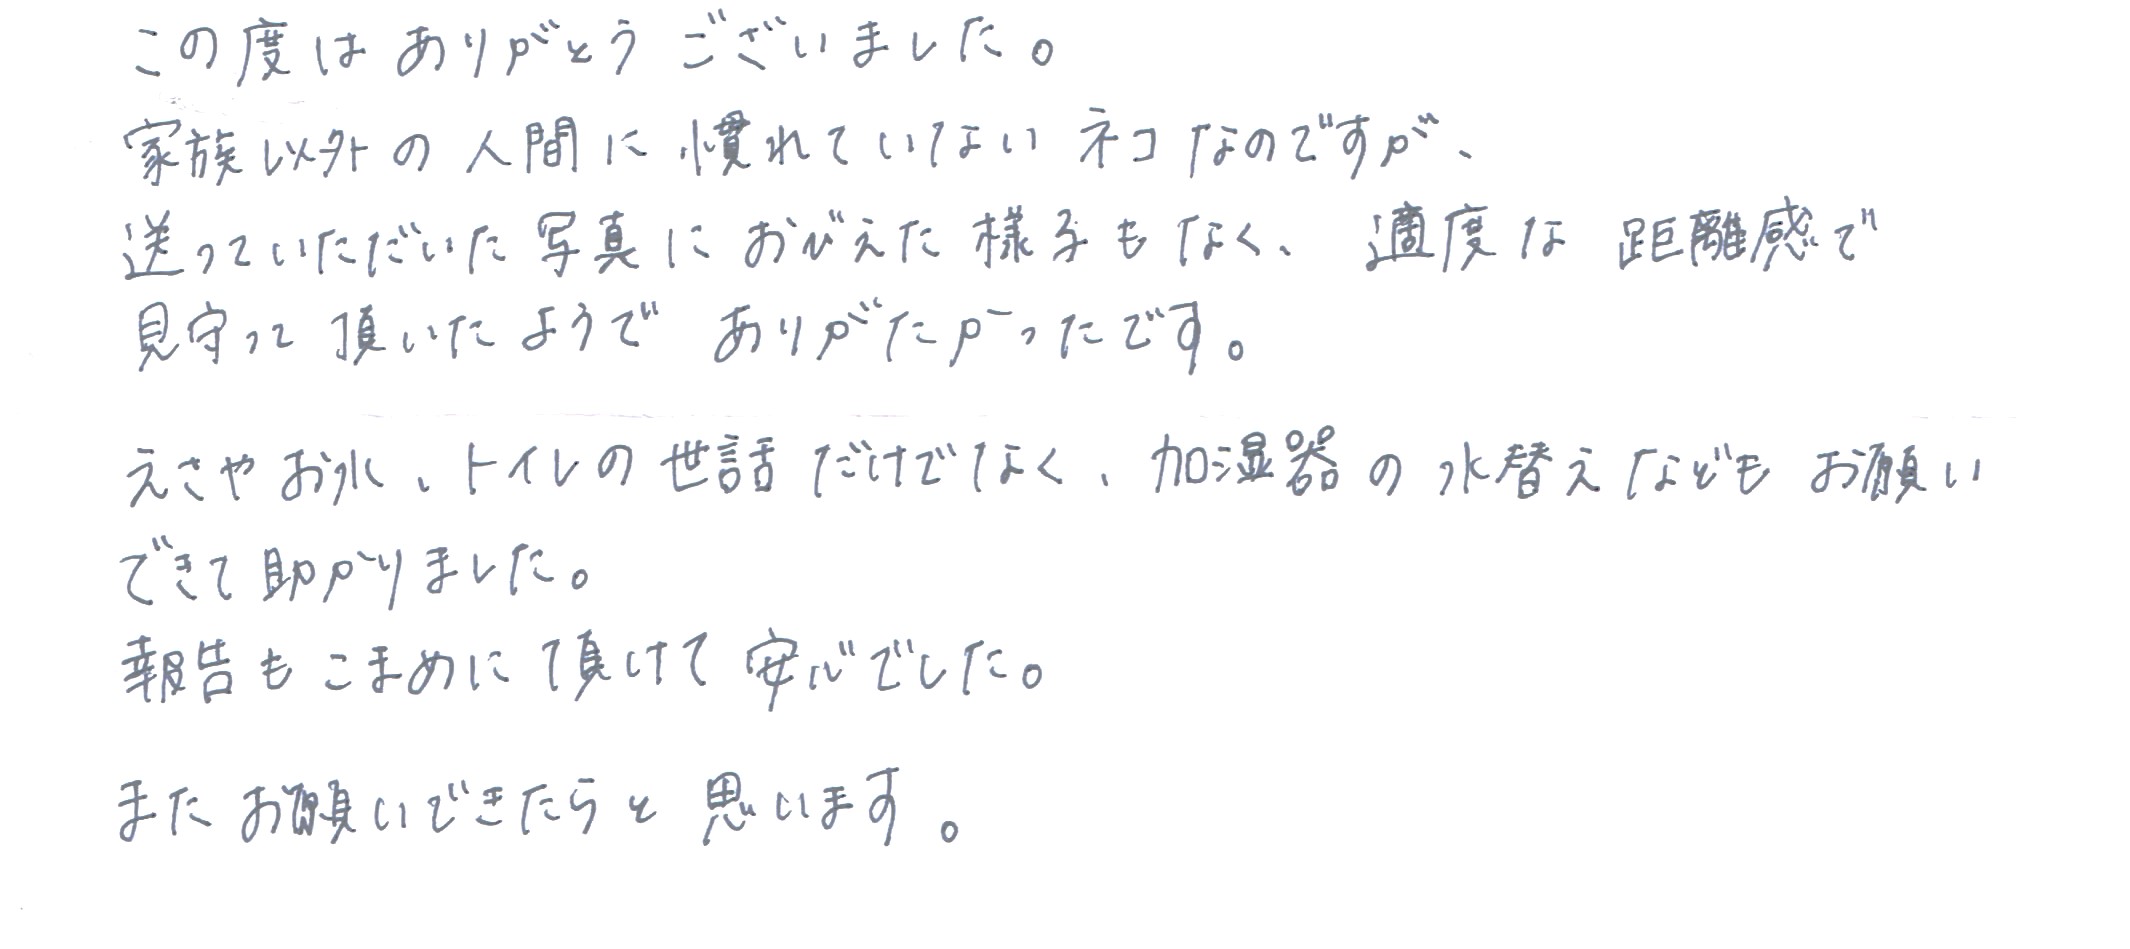 この度はありがとうございました。
家族以外の人間に慣れていないネコなのですが、
送っていただいた写真におびえた様子もなく、適度な距離感で
見守って頂いたようでありがたかったです。
えさやお水、トイレの世話だけでなく、加湿器の水替えなどもお願い
できて助かりました。
報告もこまめに頂けて安心でした。
またお願いできたらと思います。